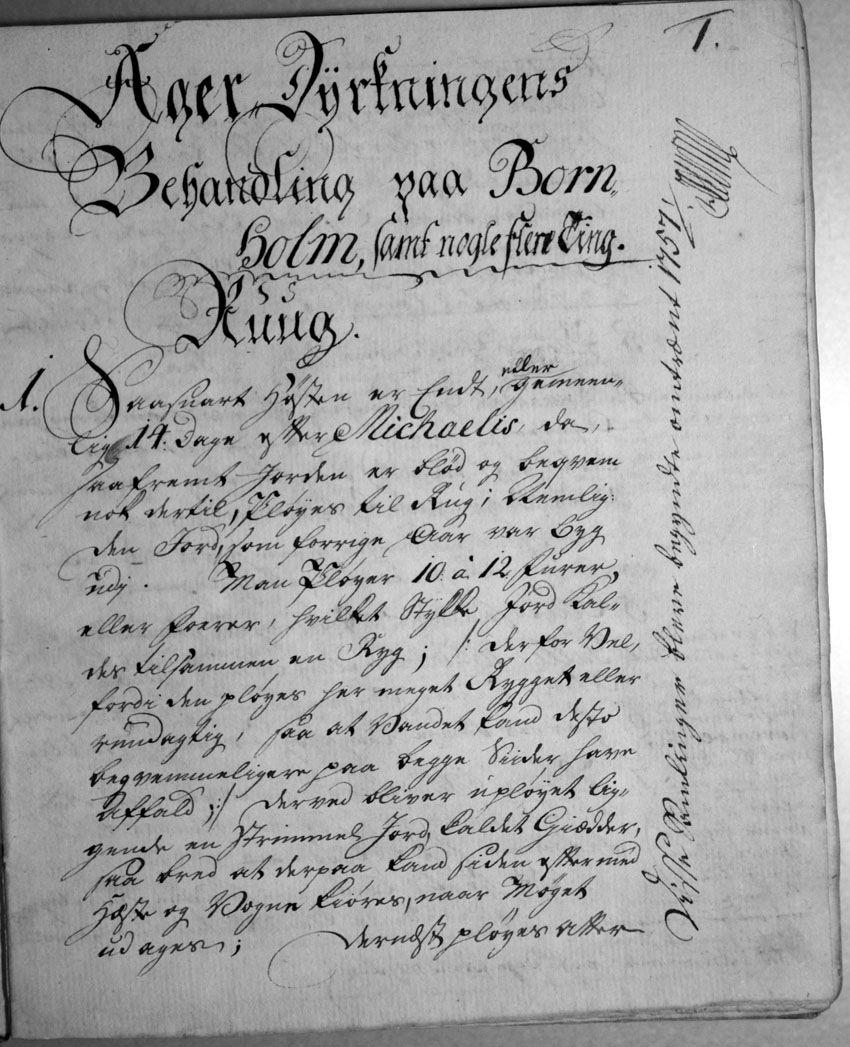 1.
Ager Dÿrkningens
Behandling paa Born-
holm, samt nogle flere Ting.
§ §
Ruug.
1. Saasnart Høsten er Endt, eller gemeen-
lig 14. Dage efter Michaelis, da,
saafremt Jorden er blød og beqvem
nok dertil, Pløyes til Rug; Nemlig:
den Jord, som forrige Aar var Byg
udj. Man Pløyer 10. à 12 Furer,
eller foerer, hvilket Stykke Jord kal-
des tilsammen en Ryg; /: derfor Vel,
fordi den pløyes her meget Rygget eller
rundagtig, saa at Vandet kand desto
beqvemmeligere paa begge Siider have
Affald; :/ derved bliver upløyet lig-
gende en Strimmel Jord, kaldet Giædder,
saa bred at derpaa kand siden efter med
Hæste og Vogne kiøres, naar Møget
udages; dernæst pløyes atter
Disse Samlinger bleve begyndte omtrent 1757.